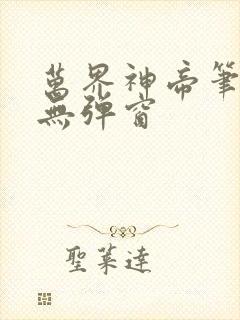 萬界神帝筆
無彈窗
聖萊達